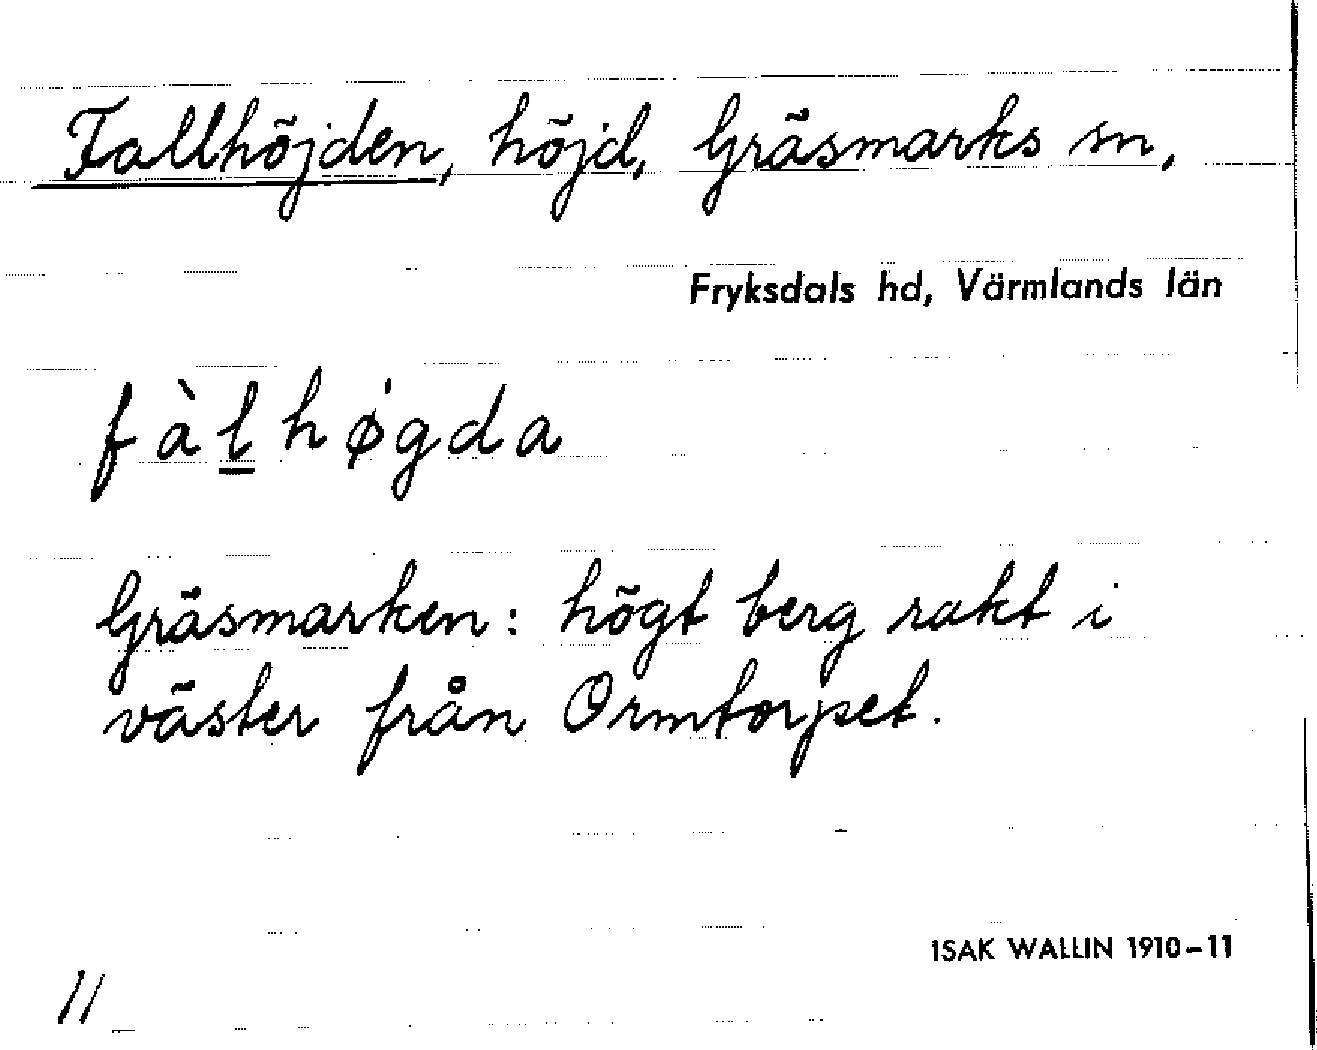 Fallhöjden, höjd, Gräsmarks sn,
Fryksdals hd, Värmlands län
fàl̳hǿgda
Gräsmarken: högt berg rakt i
väster från Ormtorpet.
ISAK WALLIN 1910-11
11